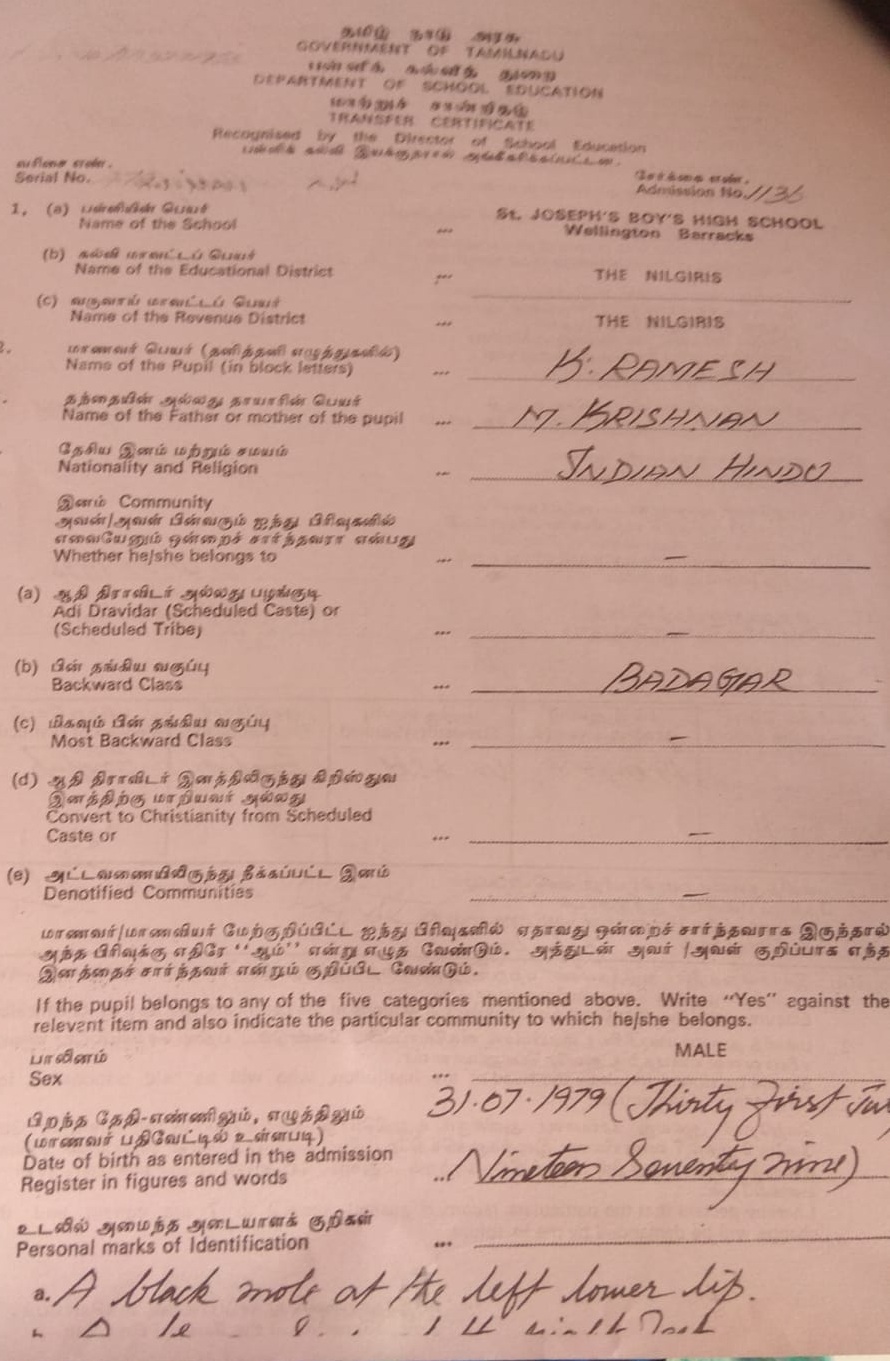 தமிழ் நாடு அரசு
GOVERNMENT OF TAMILNADU
பள்ளிக் கல்வித் துறை
DEPARTMENT OF SCHOOL EDUCATION
மாற்றுச் சான்றிதழ்
TRANSFER CERTIFICATE
Recognised by the Director of School Education
பள்ளிக் கல்வி இயக்குநரால் அங்கீகரிக்கப்பட்டன.
வரிசை எண்.
Serial No.
சேர்க்கை எண்.
Admission No. 1136
1, (a) பள்ளியின் பெயர்
Name of the School ... St. JOSEPH'S BOY'S HIGH SCHOOL
Wellington Barracks
(b) கல்வி மாவட்டப் பெயர்
Name of the Educational District ... THE NILGIRIS
(c) வருவாய் மாவட்டப் பெயர்
Name of the Revenue District ... THE NILGIRIS
மாணவர் பெயர் (தனித்தனி எழுத்துகளில்)
Name of the Pupil (in block letters) ... K. RAMESH
தந்தையின் அல்லது தாயாரின் பெயர்
Name of the Father or mother of the pupil ... M. KRISHNAN
தேசிய இனம் மற்றும் சமயம்
Nationality and Religion ... INDIAN HINDU
இனம் Community
அவன்/அவள் பின்வரும் ஐந்து பிரிவுகளில்
எவையேனும் ஒன்றைச் சார்ந்தவரா என்பது
Whether he/she belongs to ... —
(a) ஆதி திராவிடர் அல்லது பழங்குடி
Adi Dravidar (Scheduled Caste) or
(Scheduled Tribe) ... —
(b) பின் தங்கிய வகுப்பு
Backward Class ... BADAGAR
(c) மிகவும் பின் தங்கிய வகுப்பு
Most Backward Class ... —
(d) ஆதி திராவிடர் இனத்திலிருந்து கிறிஸ்துவ
இனத்திற்கு மாறியவர் அல்லது
Convert to Christianity from Scheduled
Caste or ... —
(e) அட்டவணையிலிருந்து நீக்கப்பட்ட இனம்
Denotified Communities —
மாணவர்/மாணவியர் மேற்குறிப்பிட்ட ஐந்து பிரிவுகளில் ஏதாவது ஒன்றைச் சார்ந்தவராக இருந்தால்
அந்த பிரிவுக்கு எதிரே "ஆம்" என்று எழுத வேண்டும். அத்துடன் அவர் /அவள் குறிப்பாக எந்த
இனத்தைச் சார்ந்தவர் என்றும் குறிப்பிட வேண்டும்.
If the pupil belongs to any of the five categories mentioned above. Write "Yes" against the
relevant item and also indicate the particular community to which he/she belongs.
பாலினம்
Sex ... MALE
பிறந்த தேதி-எண்ணிலும், எழுத்திலும்
(மாணவர் பதிவேட்டில் உள்ளபடி)
31.07.1979 (Thirty First
Date of birth as entered in the admission
Register in figures and words .. Nineteen Seventy nine)
உடலில் அமைந்த அடையாளக் குறிகள்
Personal marks of Identification ...
a. A black mole at the left lower lip.